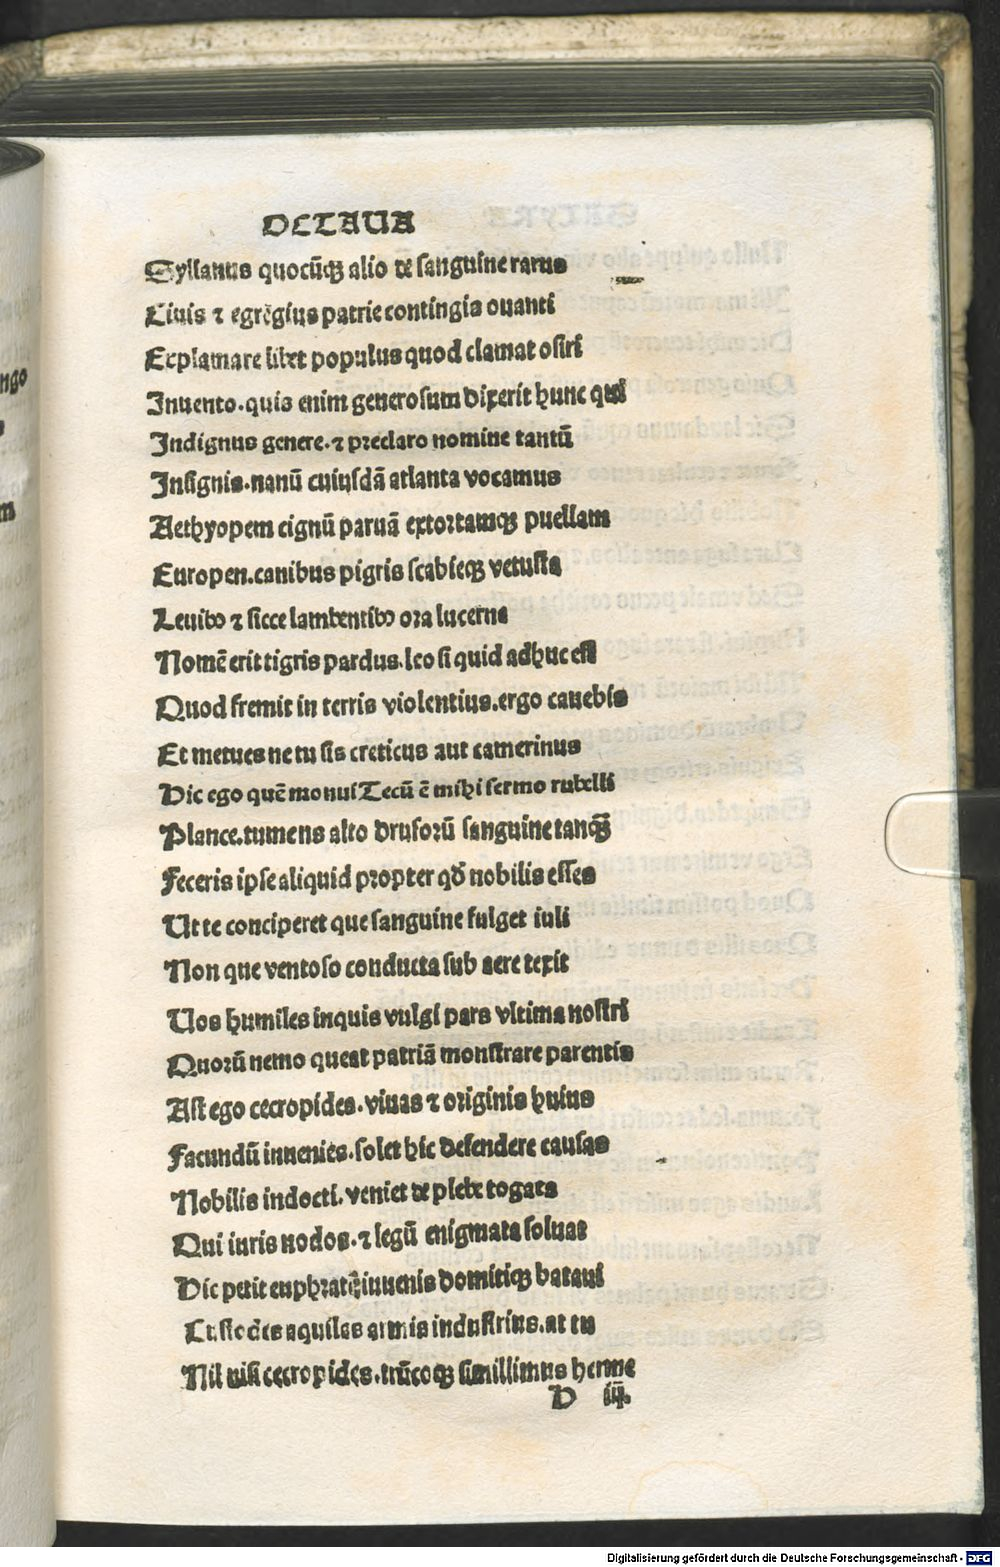 OCTAVA
Syllanus quocūqꝫ alio de sanguine rarus
Ciuis ⁊ egregius patrie contingis ouanti
Exclamare libet populus quod clamat osiri
Inuento.quis enim generosum dixerit hunc qui
Indignus genere.⁊ preclaro nomine tantū
Insignis.nanū cuiusdā atlanta vocamus
Aethyopem cignū paruā extortamqꝫ puellam
Europen.canibus pigris scabieqꝫ vetusta
Leuibꝰ ⁊ sicce lambentibꝰ ora lucerne
Nomē erit tigris pardus.leo si quid adhuc est
Quod fremit in terris violentius.ergo cauebis
Et metues ne tu sis creticus aut camerinus
Hic ego quē monui Tecū ē mihi sermo rubelli
Plance.tumens alto drusorū sanguine tanqꝫ
Feceris ipse aliquid propter qd̄ nobilis esses
Ut te conciperet que sanguine fulget iuli
Non que ventoso conducta sub aere texit
Uos humiles inquis vulgi pars vltima nostri
Quorū nemo queat patriā monstrare parentis
Ast ego cecropides.viuas ⁊ originis huius
Facundū inuenies.solet hic defendere causas
Nobilis indocti.veniet de plebe togata
Qui iuris nodos.⁊ legū enigmata soluat
Hic petit euphratē iuuenis domitiqꝫ bataui
Custodes aquilas armis industrius.at tu
Nil nisi cecropides.trūcoqꝫ simillimus herme
D iij.
ngo
m
Digitalisierung gefördert durch die Deutsche Forschungsgemeinschaft - DFG